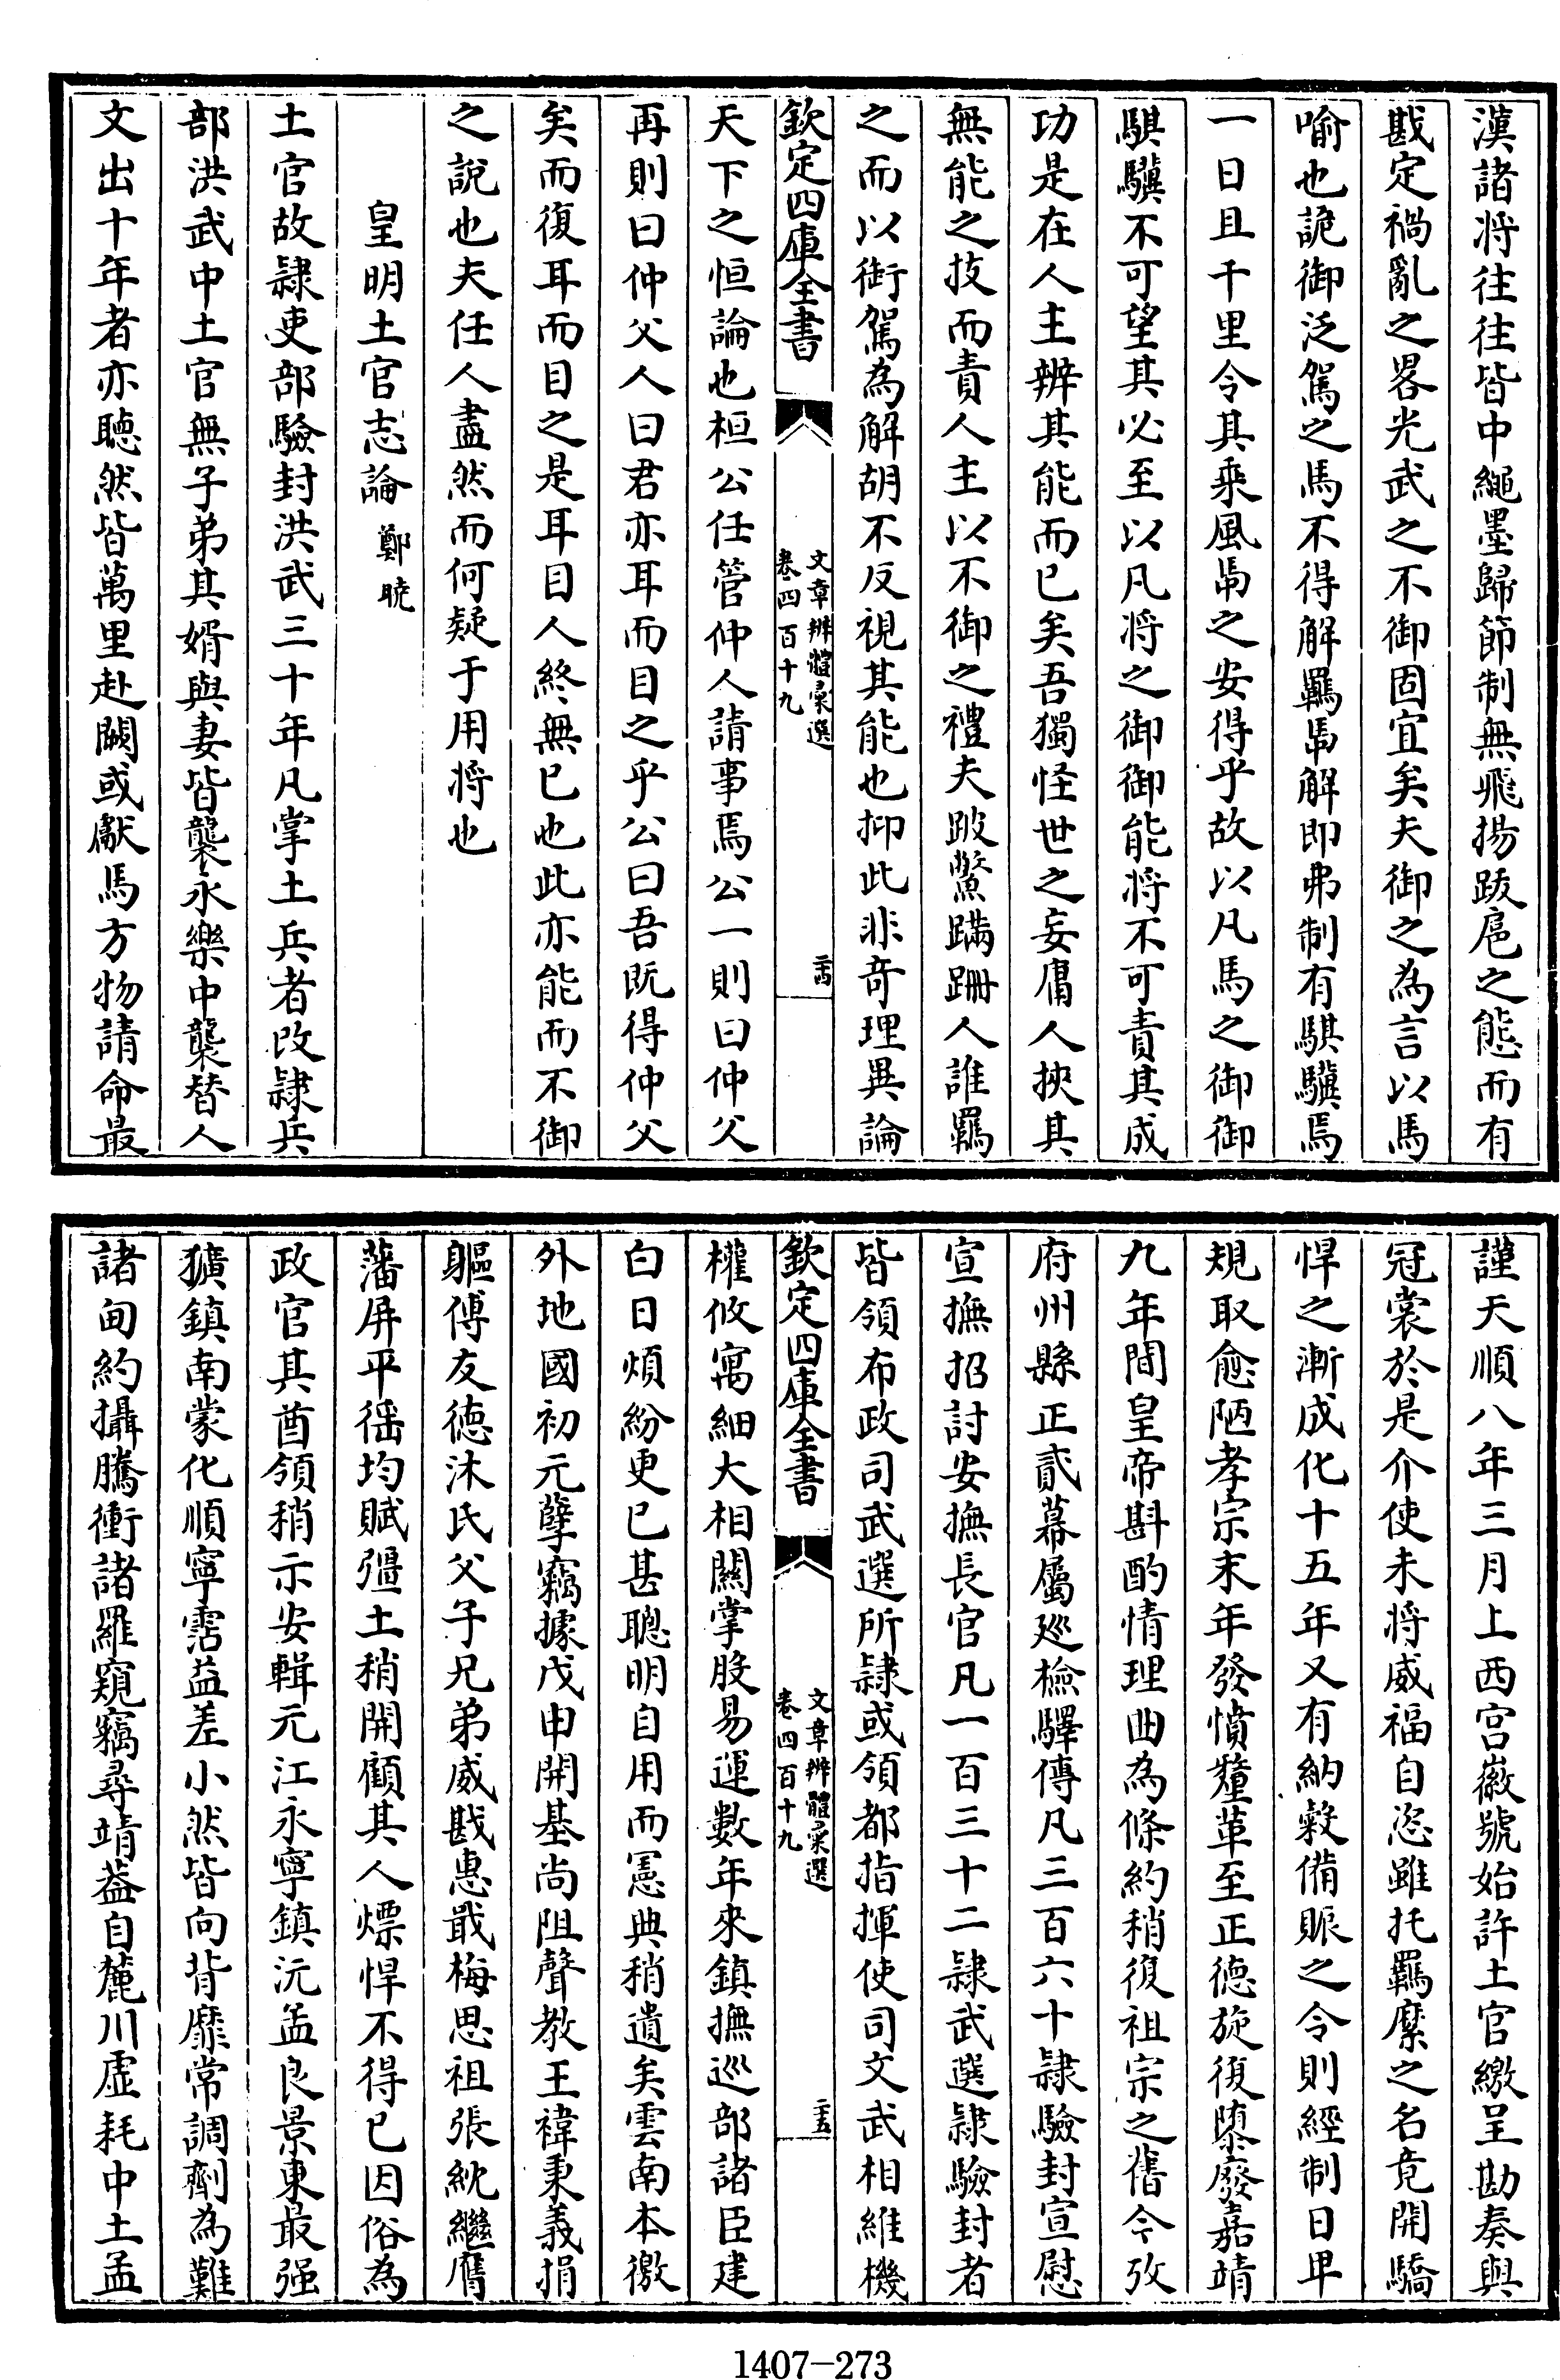 漢諸将往往皆中繩墨歸節制無飛揚跋扈之態而有
戡定禍亂之畧光武之不御固宜矣夫御之為言以馬
喻也詭御泛駕之馬不得解羈馽解即弗制有騏驥焉
一日且千里令其乘風馽之安得乎故以凡馬之御御
騏驥不可望其必至以凡将之御御能将不可責其成
功是在人主辨其能而已矣吾獨怪世之妄庸人挾其
無能之技而責人主以不御之禮夫跛鱉蹣跚人誰羈
之而以銜駕為解胡不反視其能也抑此非奇理異論
欽定四庫全書
文章辨體彚選
卷四百十九
二十四
天下之恒論也桓公任管仲人請事焉公一則曰仲父
再則曰仲父人曰君亦耳而目之乎公曰吾既得仲父
矣而復耳而目之是耳目人終無已也此亦能而不御
之說也夫任人盡然而何疑于用将也
皇明土官志論 鄭曉
土官故隸吏部驗封洪武三十年凡掌土兵者改隸兵
部洪武中土官無子弟其婿與妻皆襲永樂中襲替人
文出十年者亦聽然皆萬里赴闕或獻馬方物請命最
謹天順八年三月上西宮徽號始許土官繳呈勘奏與
冠裳於是介使未将威福自恣雖托羈縻之名竟開驕
悍之漸成化十五年又有納穀備賑之令則經制日卑
規取愈陋孝宗末年發憤釐革至正德旋復隳廢嘉靖
九年間皇帝斟酌情理曲為條約稍復祖宗之舊今攷
府州縣正貳幕屬廵檢驛傳凡三百六十隸驗封宣慰
宣撫招討安撫長官凡一百三十二隸武選隸驗封者
皆領布政司武選所隸或領都指揮使司文武相維機
欽定四庫全書
文章辨體彚選
卷四百十九
二十五
權攸寓細大相關掌股易運數年來鎮撫巡部諸臣建
白日煩紛更已甚聰明自用而憲典稍遺矣雲南本徼
外地國初元孽竊據戊申開基尚阻聲教王禕秉義捐
軀傅友德沐氏父子兄弟威戡惠戢梅思祖張紞繼膺
藩屏平徭均賦彊土稍開顧其人熛悍不得已因俗為
政官其酋領稍示安輯元江永寧鎮沅孟艮景東最强
獷鎮南蒙化順寧霑益差小然皆向背靡常調劑為難
諸甸約攝騰衝諸羅窺竊尋靖葢自麓川虚耗中土孟
1407-273